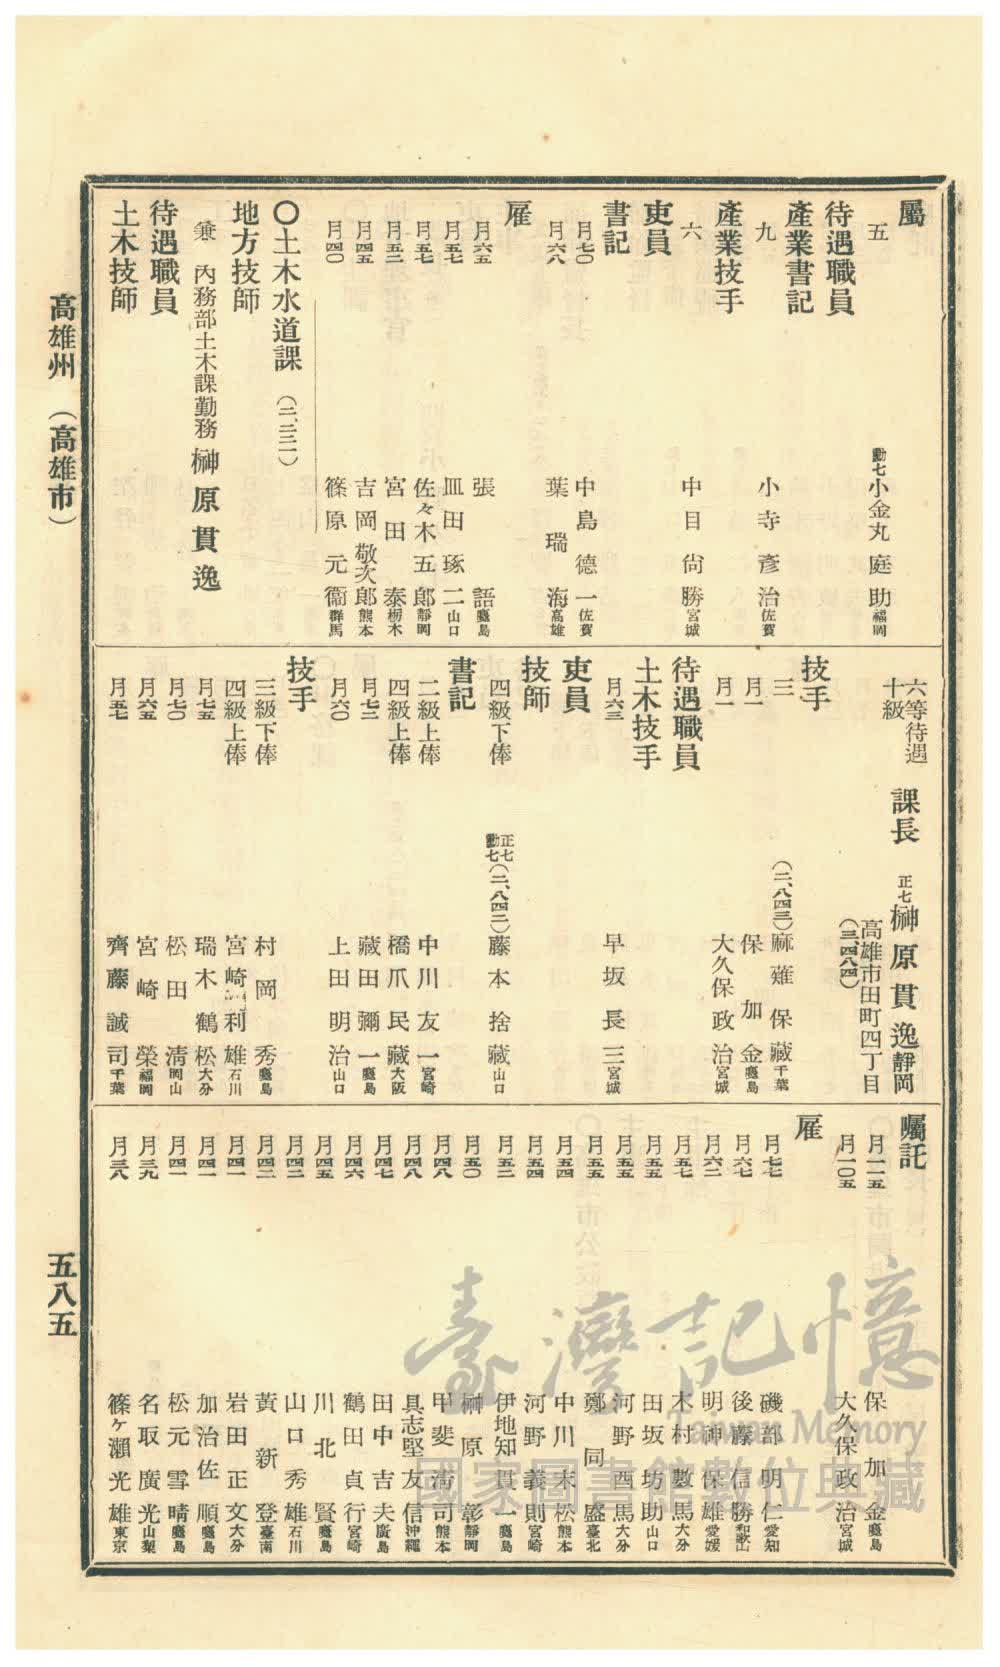 屬
五 勳七 小金丸庭助 福岡
待遇職員
產業書記
九 小寺彥治 佐賀
產業技手
六 中目尙勝 宮城
吏員
書記
月七〇 中島德一 佐賀
月六八 葉瑞海 高雄
雇
月六五 張語 鹿島
月五七 皿田琢二 山口
月五七 佐々木五郎 靜岡
月五二 宮田泰 栃木
月四五 吉岡敬次郎 熊本
月四〇 篠原元衞 群馬
〇土木水道課 (二、三二一)
地方技師
兼 內務部土木課勤務 榊原貫逸
待遇職員
土木技師
六等待遇
十級 課長 正七 榊原貫逸 靜岡
高雄市田町四丁目
(三、四八四)
技手
三 (二、八四三) 麻薙保藏 千葉
月一 保加金 鹿島
月一 大久保政治 宮城
待遇職員
土木技手
月六三 早坂長三 宮城
吏員
技師
四級下俸 正七 勳七 (二、八四二) 藤本捨藏 山口
書記
二級上俸 中川友一 宮崎
四級上俸 橋爪民藏 大阪
月七三 藏田彌一 鹿島
月六〇 上田明治 山口
技手
三級下俸 村岡秀 鹿島
四級上俸 宮崎利雄 石川
月七五 瑞木鶴松 大分
月七〇 松田淸 岡山
月六五 宮崎榮 福岡
月五七 齊藤誠司 千葉
囑託
月一一五 保加金 鹿島
月一〇五 大久保政治 宮城
雇
月七七 磯部明仁 愛知
月六七 後藤信勝 和歌山
月六二 明神保雄 愛媛
月五七 木村數馬 大分
月五五 田坂坊助 山口
月五五 河野酉馬 大分
月五五 鄭同盛 臺北
月五四 中川末松 熊本
月五四 河野義則 宮崎
月五二 伊地知貫一 鹿島
月五〇 榊原彰 靜岡
月四八 甲斐淸司 熊本
月四八 具志堅友信 沖繩
月四七 田中吉夫 廣島
月四六 鶴田貞行 宮崎
月四五 川北賢 鹿島
月四二 山口秀雄 石川
月四二 黃新登 臺南
月四一 岩田正文 大分
月四一 加治佐順 鹿島
月四一 松元雪晴 鹿島
月三九 名取廣光 山梨
月三八 篠ヶ瀨光雄 東京
高雄州 (高雄市)
五八五
臺灣記憶
Taiwan Memory
國家圖書館數位典藏